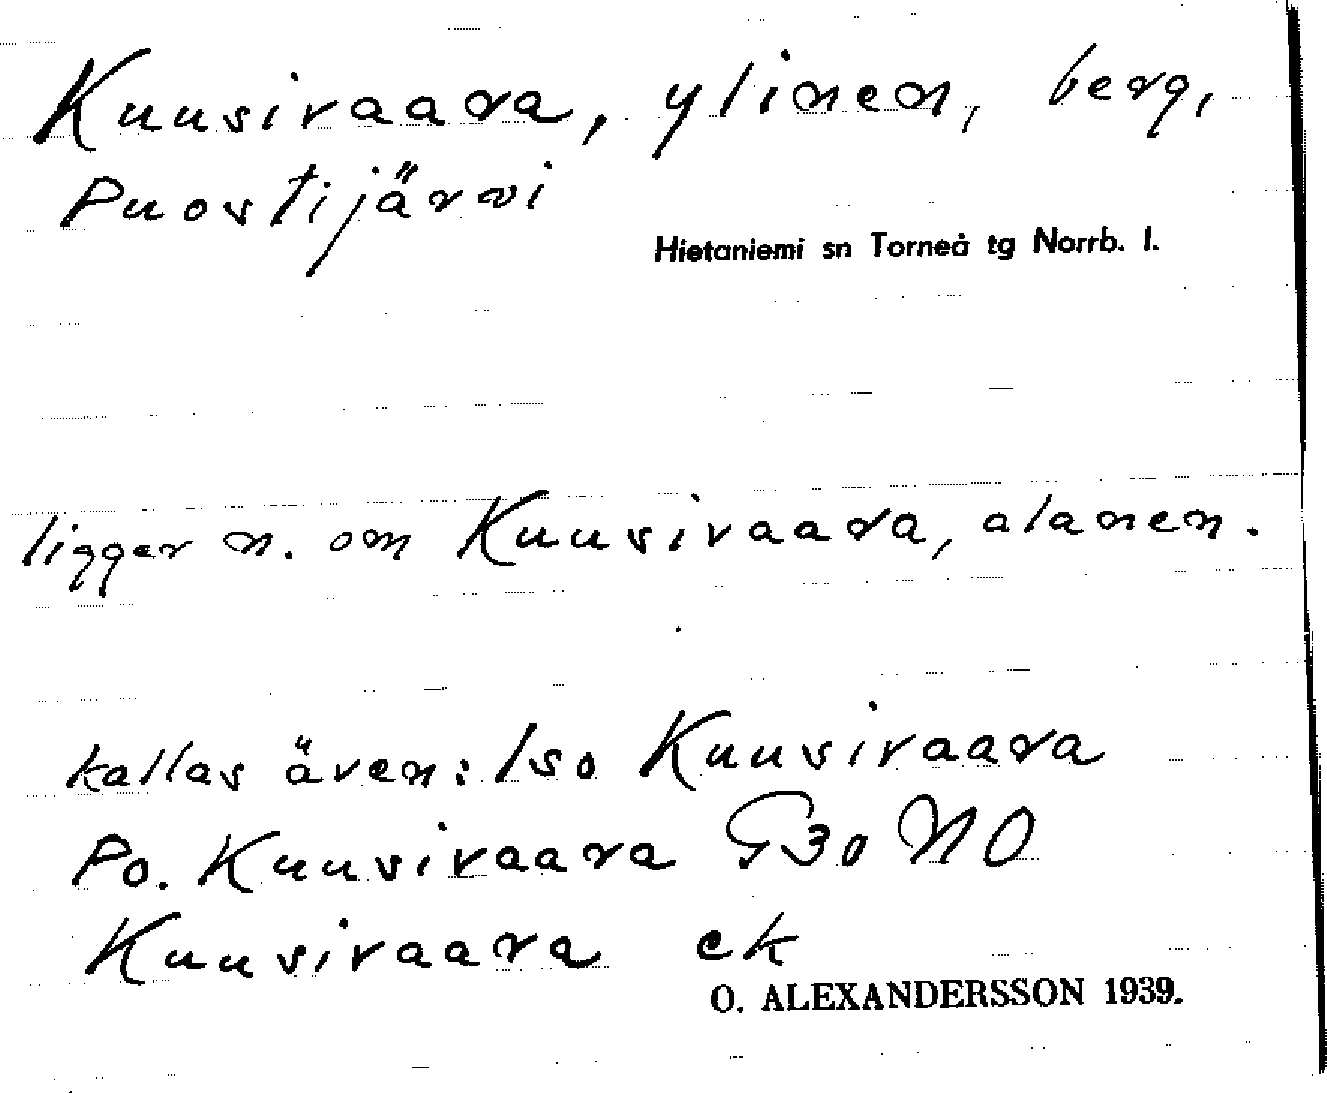 Kuusivaara, ylinen, berg,
Puostijärvi
Hietaniemi sn Torneå tg Norrb. l.
ligger n. om Kuusivaara, alanen.
kallas även: Iso Kuusivaara
Po. Kuusivaara G30 NO
Kuusivaara ek
O. ALEXANDERSSON 1939.